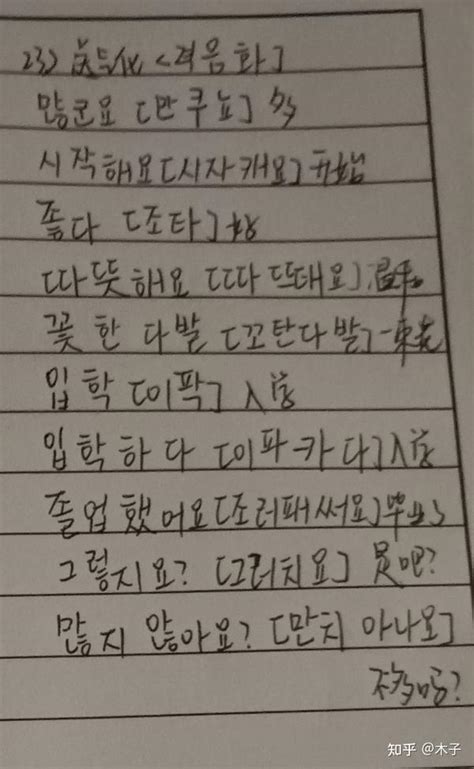 23> 送气化 <격음화]
많군요 [만쿠뇨] 多
시작해요 [시자캐요] 开始
좋다 [조타] 好
따뜻해요 [따뜨태요] 温和
꽃 한 다발 [꼬탄다발] 一束花
입학 [이팍] 入学
입학하다 [이파카다] 入学
졸업했어요 [조러패써요] 毕业了
그렇지요? [그러치요] 是吧?
많지 않아요? [만치 아나요]
不多吗?
知乎 @木子